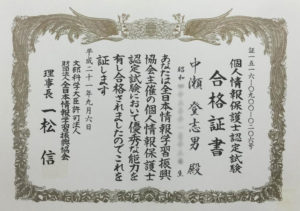 個人情報保護士認定試験
合格証書
中瀬 登志男 殿
昭和
あなたは全日本情報学習振興
協会主催の個人情報保護士
認定試験において優秀な能力を
有し合格されましたのでこれを
証します
平成二十一年九月六日
文部科学大臣許可法人
財団法人全日本情報学習振興協会
理事長 一松 信